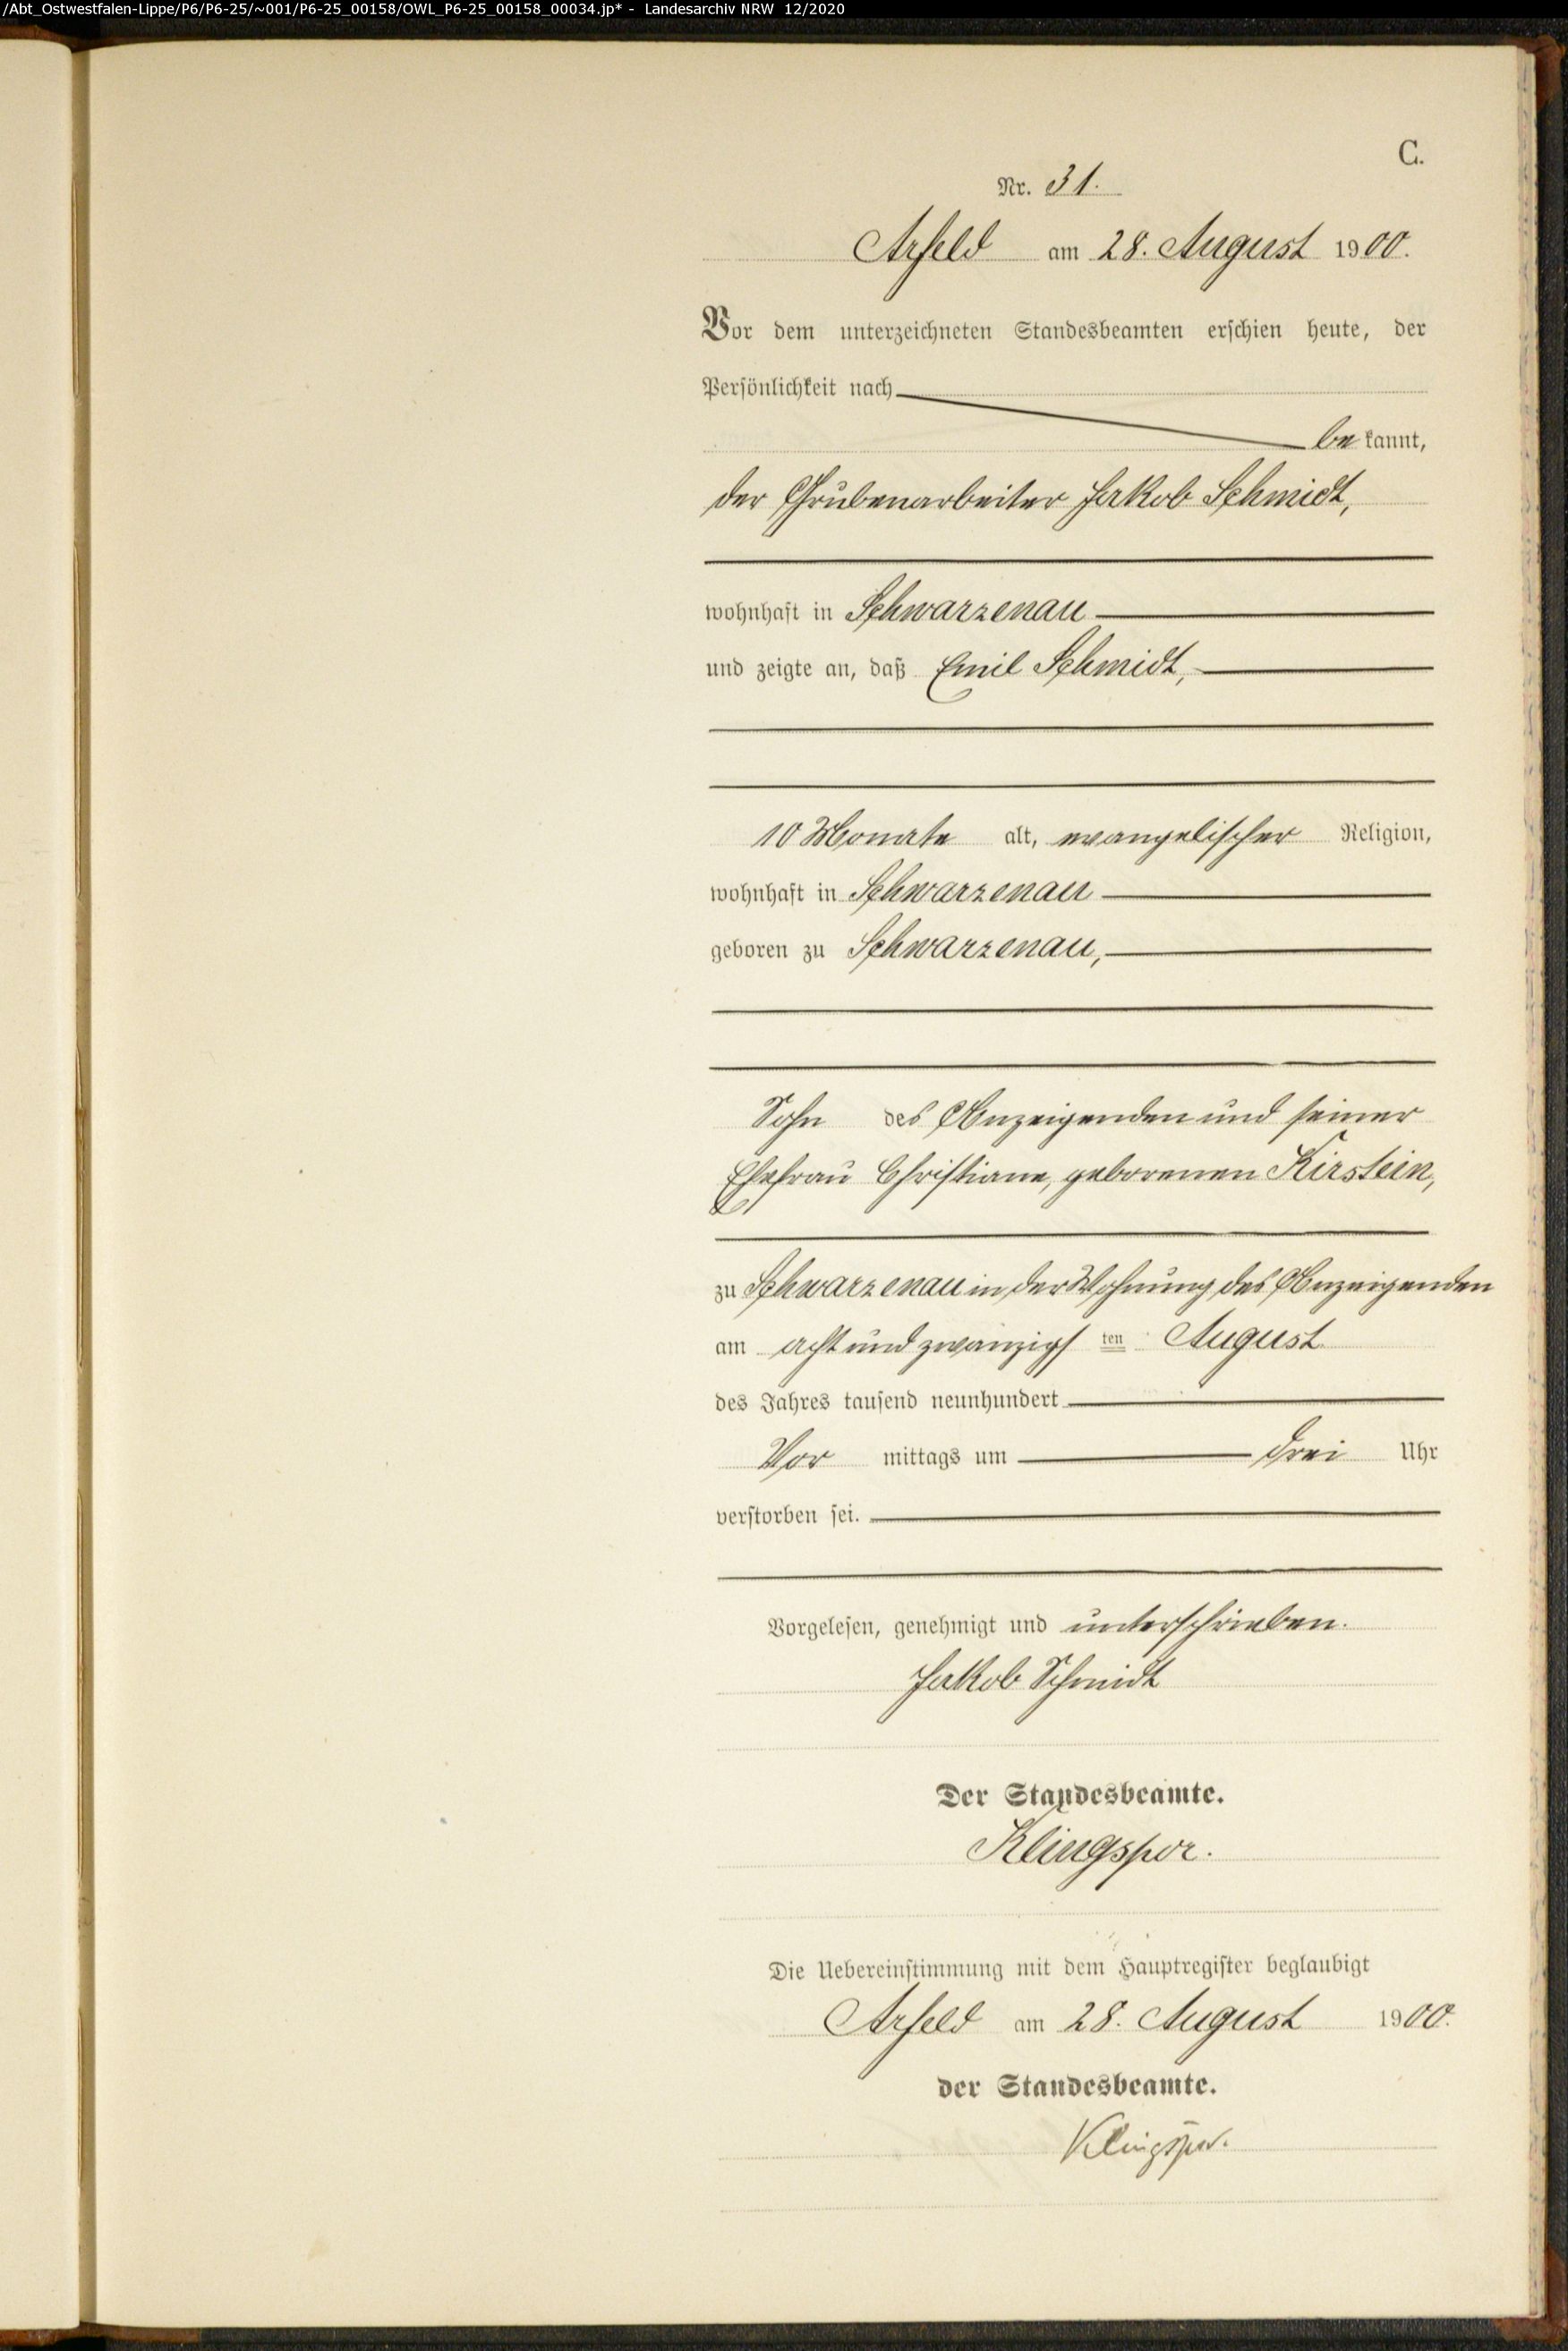 /Abt_Ostwestfalen-Lippe/P6/P6-25/~001/P6-25_00158/OWL_P6-25_00158_00034.jp* - Landesarchiv NRW 12/2020
C.
Nr. 31.
Arfeld am 28. August 1900.
Vor dem unterzeichneten Standesbeamten erschien heute, der
Persönlichkeit nach
bekannt,
der Grubenarbeiter Jakob Schmidt,
wohnhaft in Schwarzenau
und zeigte an, daß Emil Schmidt,
10 Monate alt, evangelischer Religion,
wohnhaft in Schwarzenau
geboren zu Schwarzenau,
Sohn des Anzeigenden und seiner
Ehefrau Christiane, geborenen Kirstein,
zu Schwarzenau in der Wohnung des Anzeigenden
am acht und zwanzigsten August
des Jahres tausend neunhundert
Vor mittags um drei Uhr
verstorben sei.
Vorgelesen, genehmigt und unterschrieben.
Jakob Schmidt
Der Standesbeamte.
Klingspor.
Die Uebereinstimmung mit dem Hauptregister beglaubigt
Arfeld am 28. August 1900.
der Standesbeamte.
Klingspor.